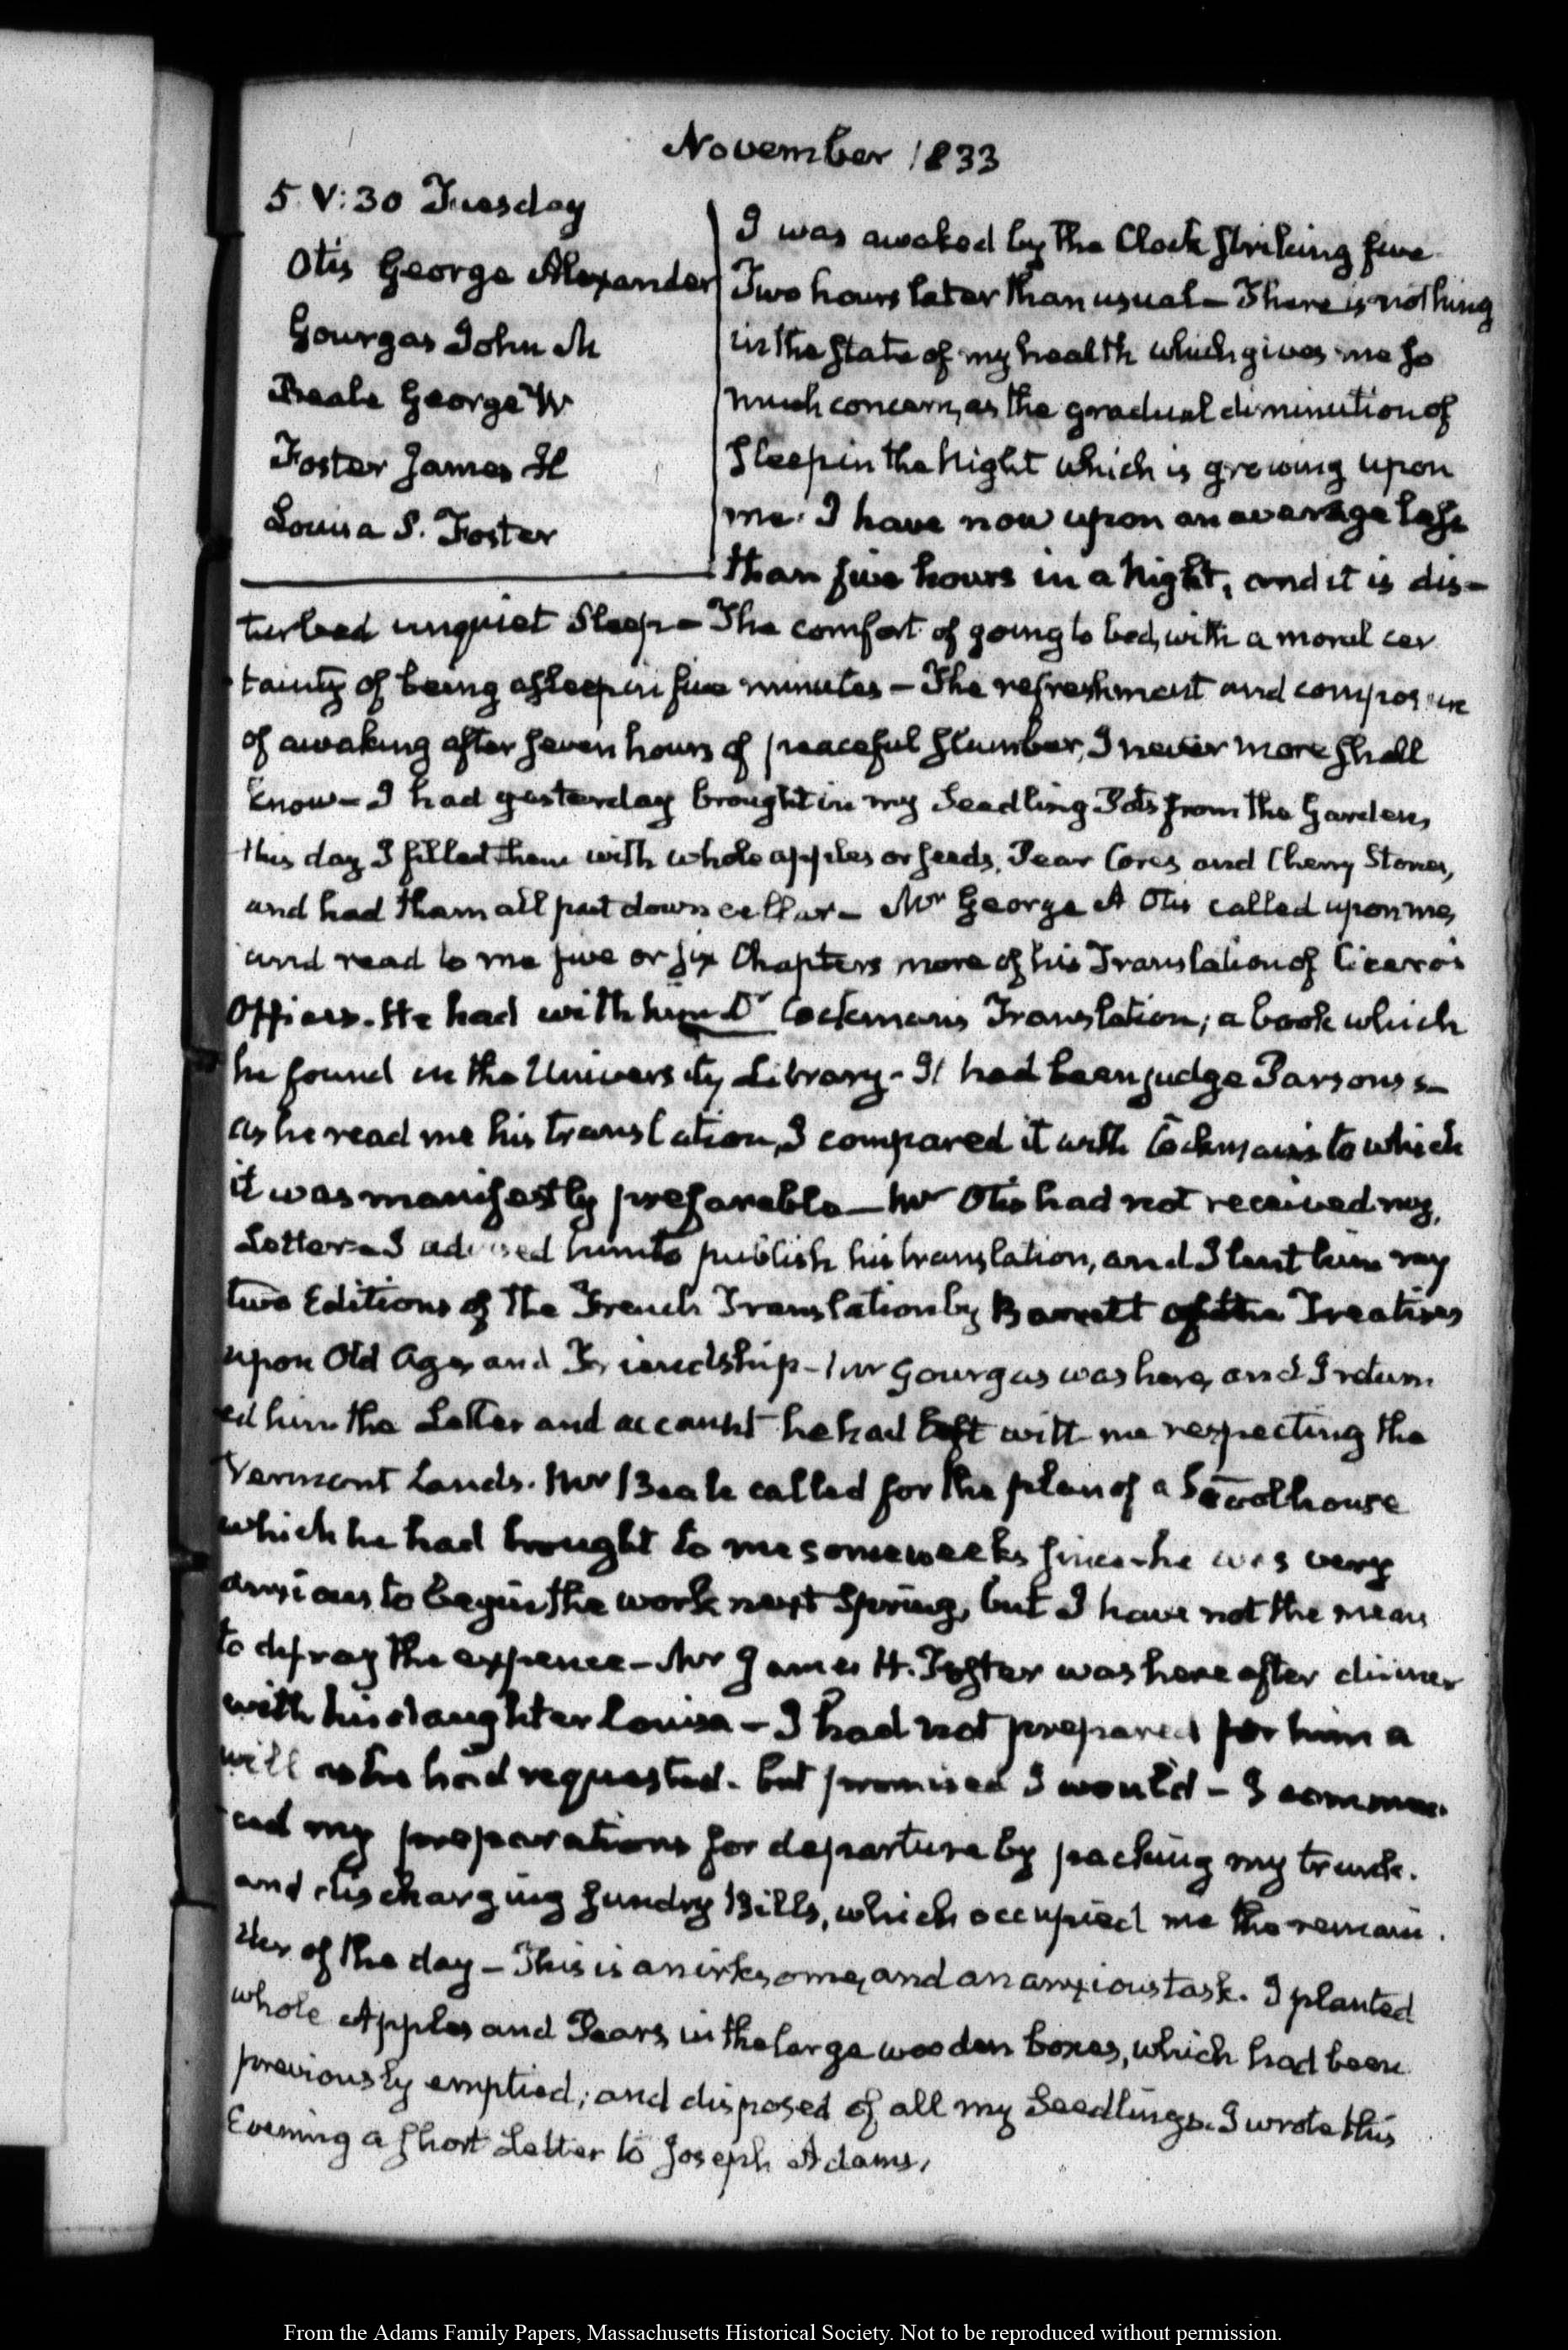 November 1833
5. V:30 Tuesday
Otis George Alexander
Gourgas John M
Beale George W
Foster James H
Louisa S. Foster
I was awaked by the Clock striking five
Two hours later than usual – There is nothing
in the state of my health which gives me so
much concern, as the gradual diminution of
sleep in the Night which is growing upon
me. I have now upon an average less
than five hours in a Night, and it is dis-
turbed unquiet Sleep – The comfort of going to bed, with a moral cer
tainty of being asleep in five minutes – The refreshment and composure
of awaking after seven hours of peaceful slumber, I never more shall
know – I had yesterday brought in my Seedling Pots from the Garden,
this day I filled them with whole apples or seeds, Pear Cores and Cherry Stones,
and had them all put down cellar – Mr George A Otis called upon me,
and read to me five or six Chapters more of his Translation of Cicero's
Offices. He had with him Dr Cockman's Translation; a book which
he found in the University Library – It had been judge Parsons's –
as he read me his translation, I compared it with Cockman's to which
it was manifestly preferable – Mr Otis had not received my,
Letter – I advised him to publish his translation, and I lent him my
two Editions of the French Translation by Barrett of the Treatises
upon Old Age, and Friendship – Mr Gourgas was here, and I return
ed him the Letter and account he had left with me respecting the
Vermont Lands. Mr Beale called for the plan of a Schoolhouse
which he had brought to me some weeks since – he was very
anxious to begin the work next Spring, but I have not the means
to defray the expence – Mr James H. Foster was here after dinner
with his daughter Louisa – I had not prepared for him a
will as he had requested. but promised I would – I commen
ced my preparations for departure by packing my trunk.
and discharging sundry Bills, which occupied me the remain.
der of the day – This is an irksome, and an anxious task. I planted
whole Apples and Pears in the large wooden boxes, which had been
previously emptied; and disposed of all my Seedlings. I wrote this
Evening a short Letter to Joseph Adams,
From the Adams Family Papers, Massachusetts Historical Society. Not to be reproduced without permission.